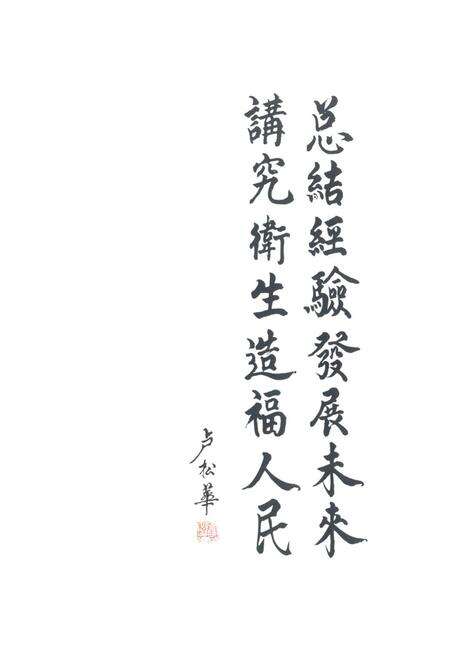 总結經驗發展未來
講究衛生造福人民
卢松華